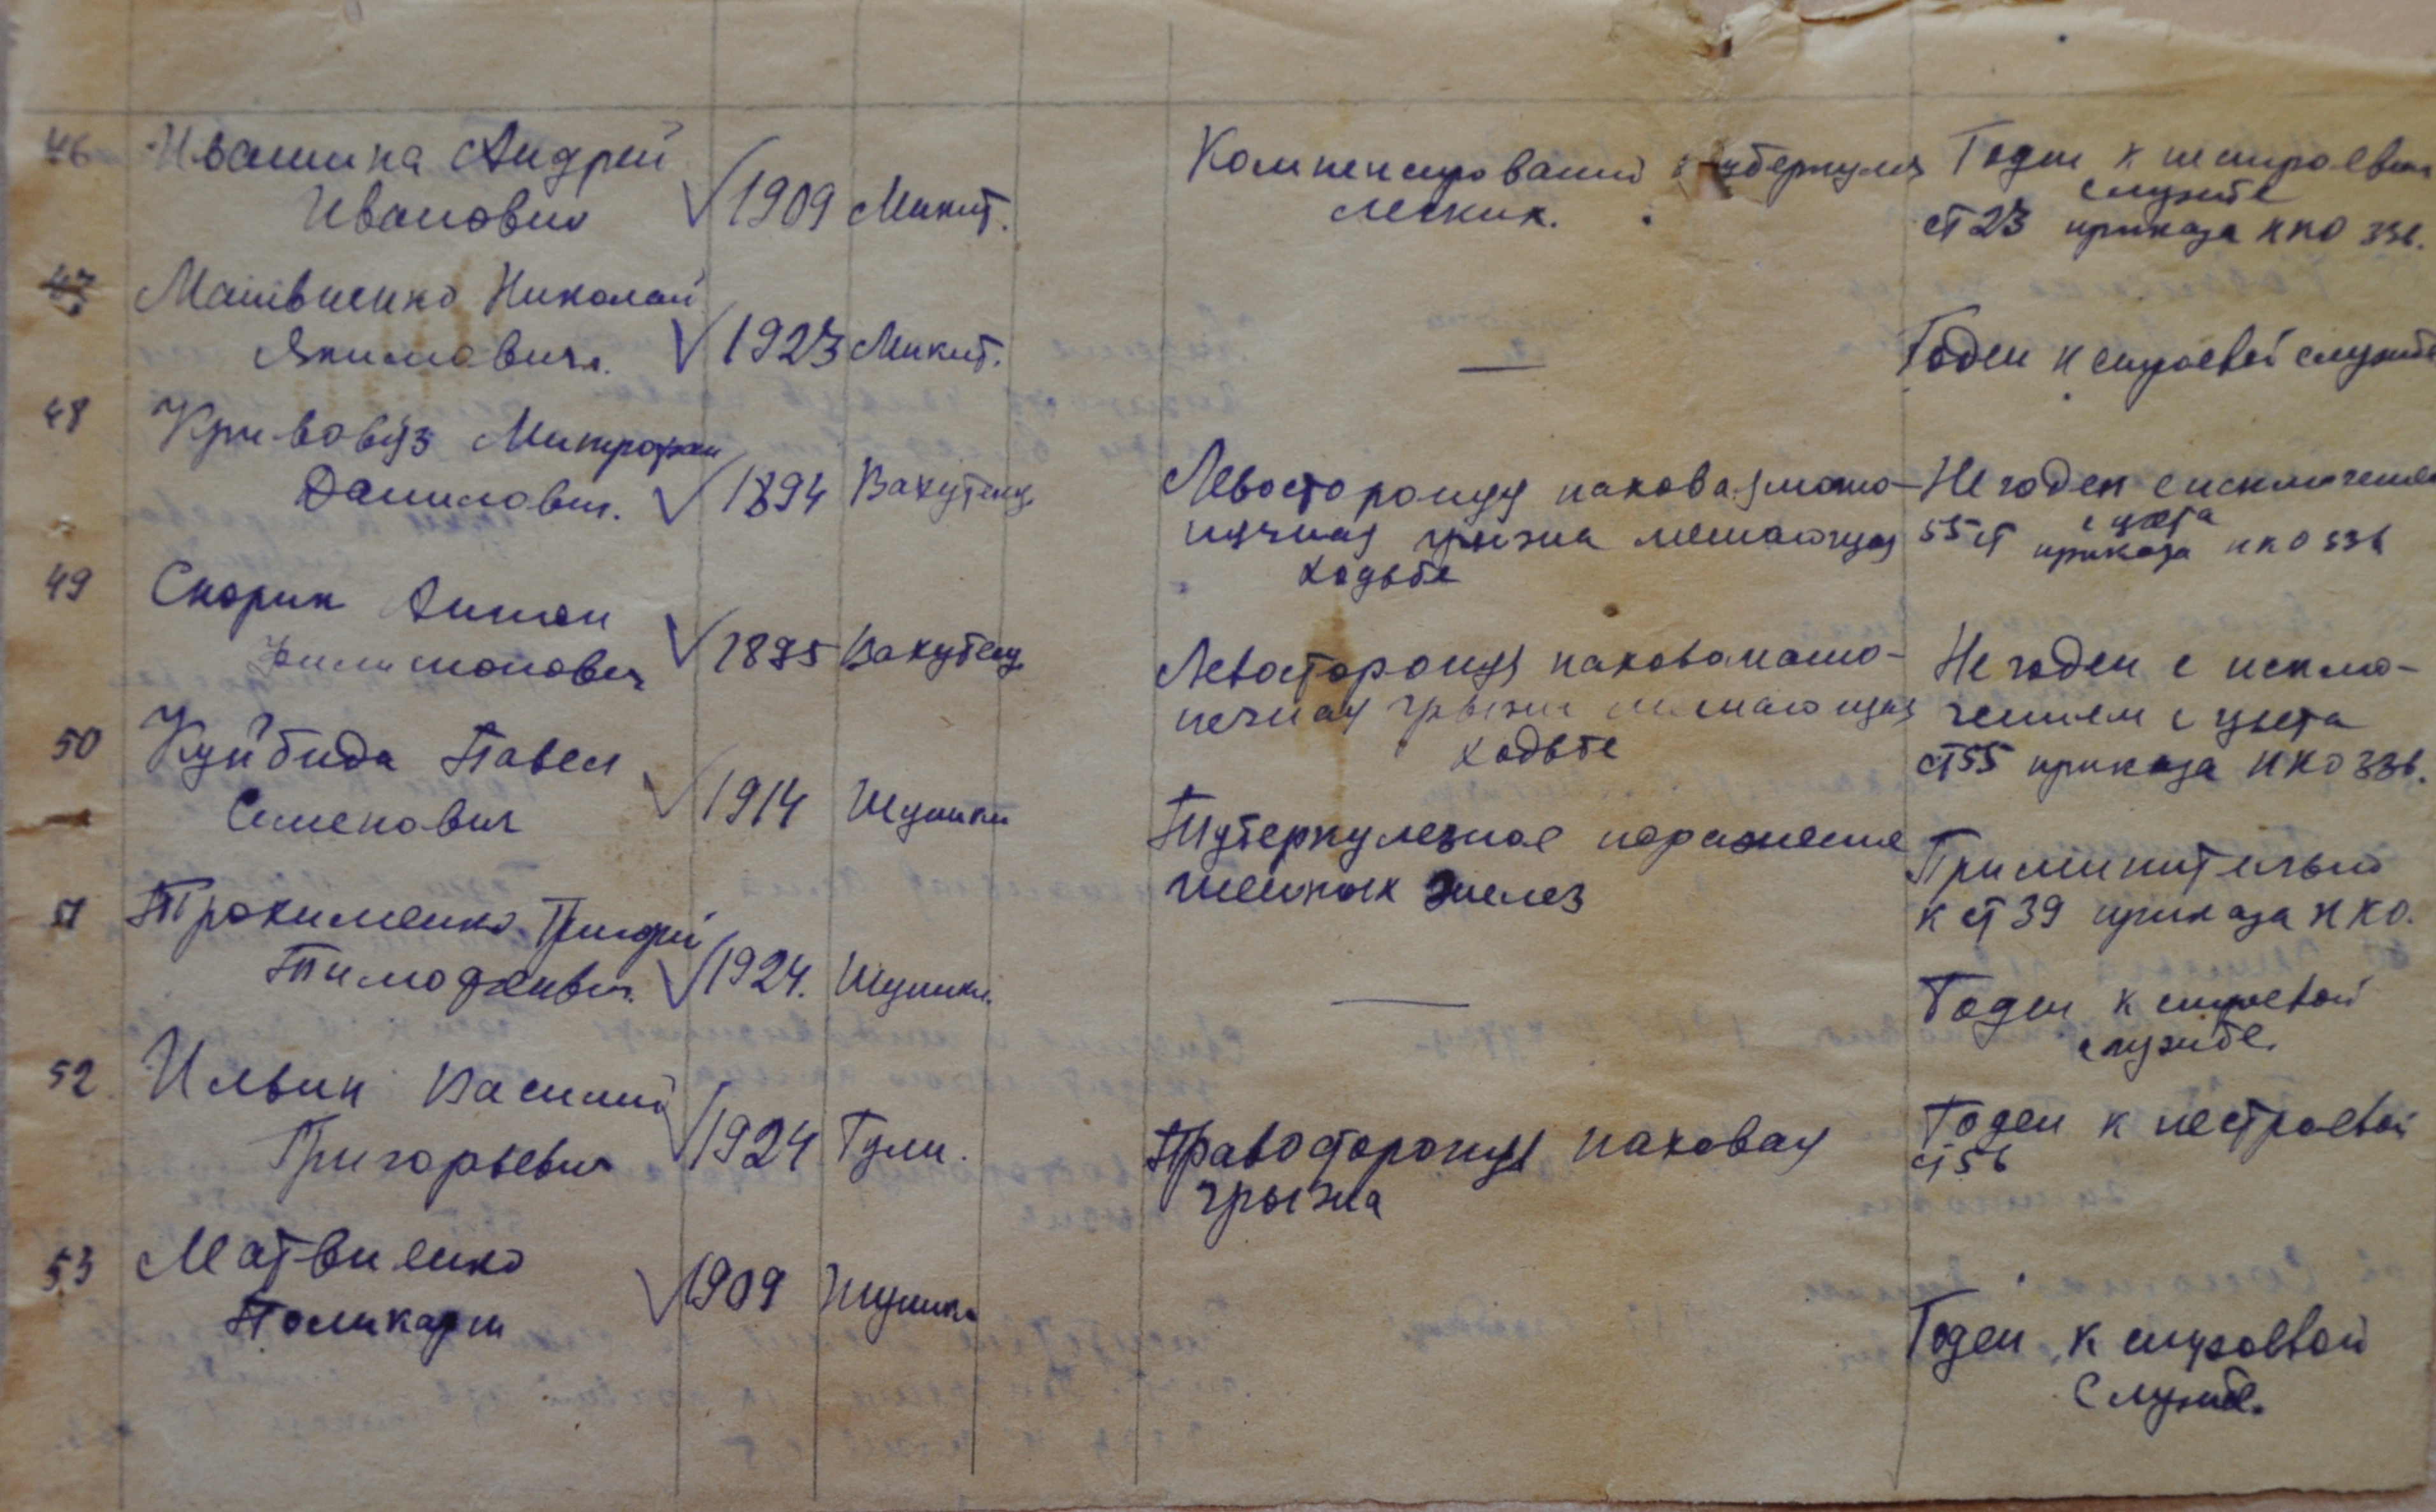 46 Ивашина Андрей 1909 Микит. Компенсированый туберкулез Годен к нестроевой
Иванович легких. службе
ст 23 приказа НКО 336.
47 Матвиенко Николай 1923 Микит. — Годен к строевой службе
Якимович.
48 Кривовяз Митрофан 1894 Вахутенц. Левосторонняя пахова мошо- Не годен с исключением
Данилович. ночная грыжа мешающая с учета
ходьбе 55 ст приказа НКО 336
49 Скорик Антон 1895 Вахутенц. Левосторонняя паховомошо- Не годен с исклю-
Филимонович ночная грыжа мешающая чением с учета
ходьбе ст 55 приказа НКО 336.
50 Куйбида Павел 1914 Шушки Туберкулезное поражение Применительно
Семенович шейных желез к ст 39 приказа НКО.
51 Трохименко Григорий 1924. Шушки. — Годен к строевой
Тимофеевич. службе.
52 Ильин Василий 1924 Гули. Правосторонняя паховая Годен к нестроевой
Григорьевич грыжа ст 56
53 Матвиенко 1909 Шушки Годен к строевой
Поликарп службе.